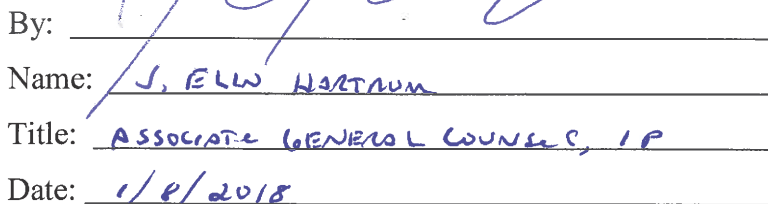 By:
Name: J. ELLIN HARTRUM
Title: ASSOCIATE GENERAL COUNSEL, IP
Date: 1/8/2018